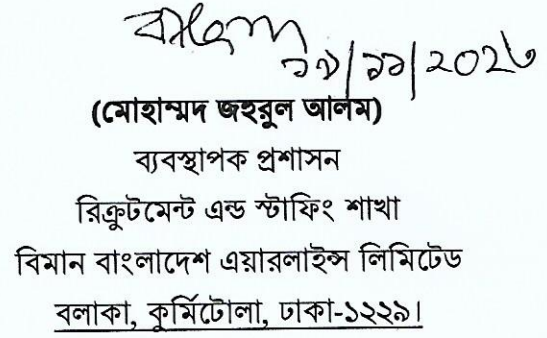 ১৯/১১/২০২৩
(মোহাম্মদ জহুরুল আলম)
ব্যবস্থাপক প্রশাসন
রিক্রুটমেন্ট এন্ড স্টাফিং শাখা
বিমান বাংলাদেশ এয়ারলাইন্স লিমিটেড
বলাকা, কুর্মিটোলা, ঢাকা-১২২৯।